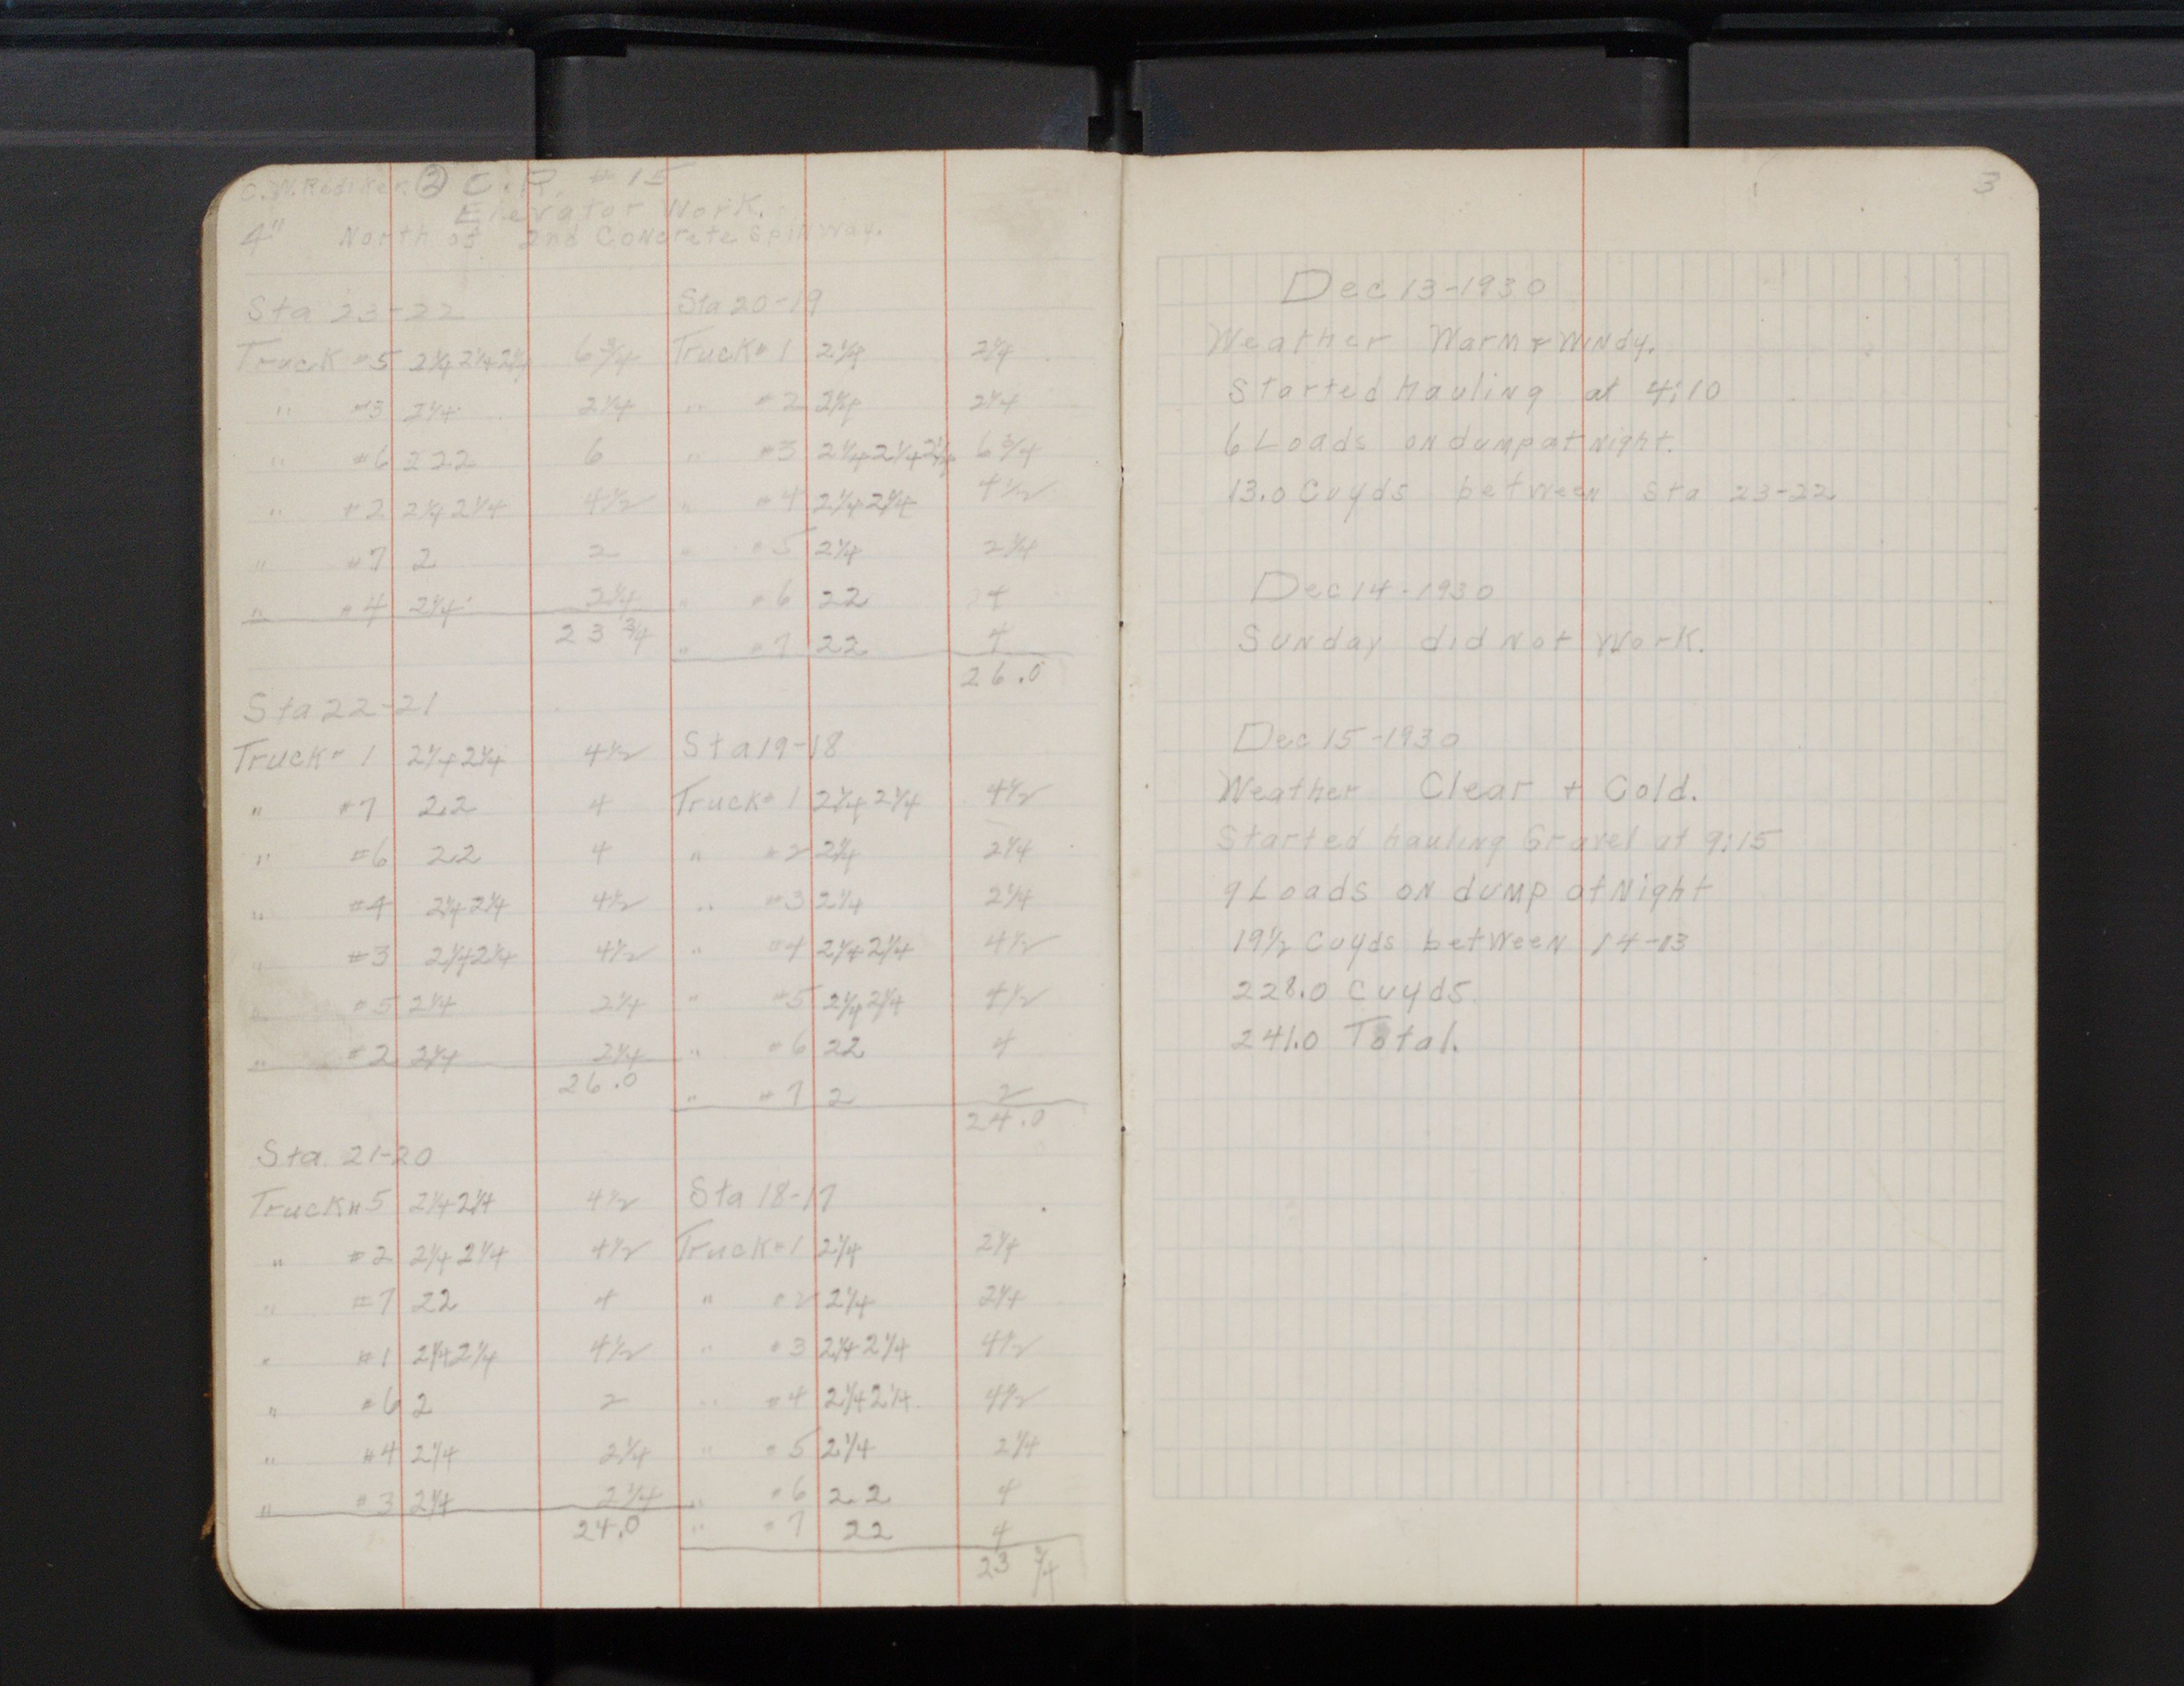 C.W. Rediker. 2 C.R. #15
Elevator Work.
4" North of 2nd Concrete Spillway.
Sta 23-22
Truck #5 2¼ 2¼ 2¼ 6¾
" #3 2¼ 2¼
" #6 2 2 2 6
" #2 2¼ 2¼ 4½
" #7 2 2
" #4 2¼ 2¼
23¾
Sta 22-21
Truck # 1 2¼ 2¼ 4½
" #7 2 2 4
" #6 2 2 4
" #4 2¼ 2¼ 4½
" #3 2¼ 2¼ 4½
" #5 2¼ 2¼
" #2 2¼ 2¼
26.0
Sta. 21-20
Truck # 5 2¼ 2¼ 4½
" #2 2¼ 2¼ 4½
" #7 2 2 4
" #1 2¼ 2¼ 4½
" #6 2 2
" #4 2¼ 2¼
" #3 2¼ 2¼
24.0
Sta 20-19
Truck # 1 2¼ 2¼
" #2 2¼ 2¼
" #3 2¼ 2¼ 2¼ 6¾
" #4 2¼ 2¼ 4½
" #5 2¼ 2¼
" #6 2 2 4
" #7 2 2 4
26.0
Sta 19-18
Truck # 1 2¼ 2¼ 4½
" #2 2¼ 2¼
" #3 2¼ 2¼
" #4 2¼ 2¼ 4½
" #5 2¼ 2¼ 4½
" #6 2 2 4
" #7 2 2
24.0
Sta 18-17
Truck # 1 2¼ 2¼
" #2 2¼ 2¼
" #3 2¼ 2¼ 4½
" #4 2¼ 2¼ 4½
" #5 2¼ 2¼
" #6 2 2 4
" #7 2 2 4
23¾
3
Dec 13-1930
Weather Warm + Windy.
Started hauling at 4:10
6 Loads on dump at Night.
13.0 Cuyds between Sta 23-22
Dec 14-1930
Sunday did not Work.
Dec 15-1930
Weather Clear + Cold.
Started hauling Gravel at 9:15
9 Loads on dump at Night
19½ Cuyds between 14-13
228.0 Cuyds
241.0 Total.